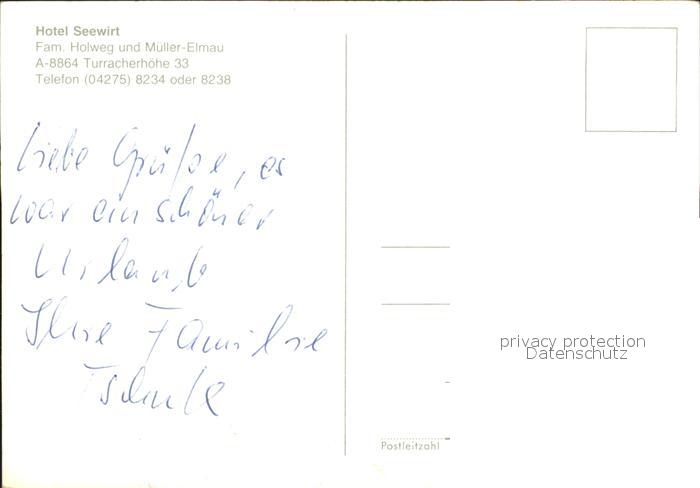 Hotel Seewirt
Fam. Holweg und Müller-Elmau
A-8864 Turracherhöhe 33
Telefon (04275) 8234 oder 8238
Liebe Grüße, es
war ein schöner
Urlaub
Ihre Familie
privacy protection
Datenschutz
Postleitzahl